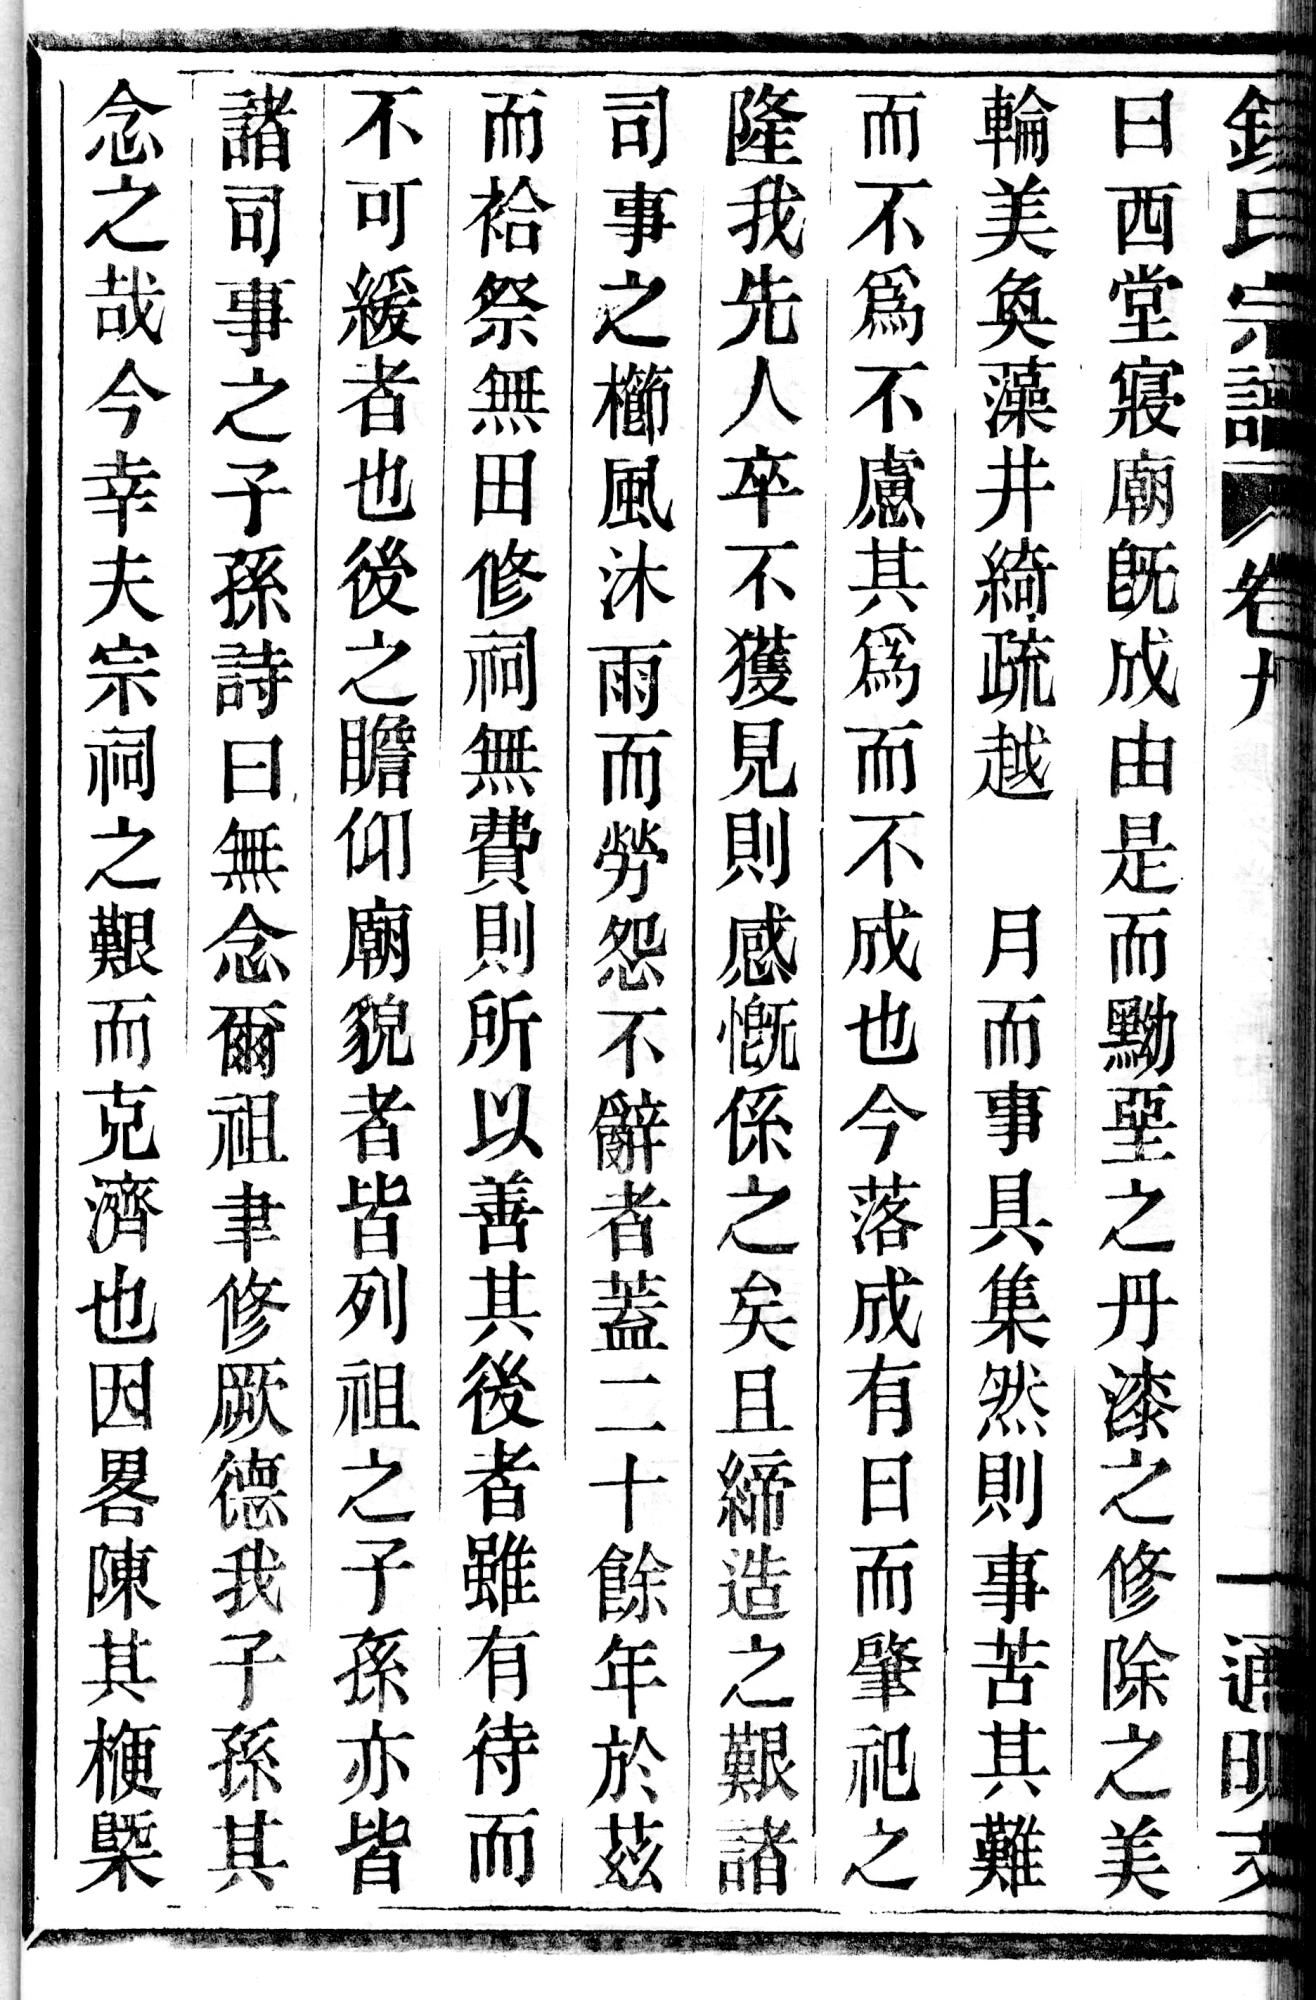 氏宗譜 卷
曰西堂寢廟既成由是而黝堊之丹漆之修除之美
輪美奐藻井綺疏越　月而事具集然則事苦其難
而不爲不慮其爲而不成也今落成有日而肇祀之
隆我先人卒不獲見則感慨係之矣且締造之艱諸
司事之櫛風沐雨而勞怨不辭者蓋二十餘年於茲
而祫祭無田修祠無費則所以善其後者雖有待而
不可緩者也後之瞻仰廟貌者皆列祖之子孫亦皆
諸司事之子孫詩曰無念爾祖聿修厥德我子孫其
念之哉今幸夫宗祠之艱而克濟也因畧陳其梗槩